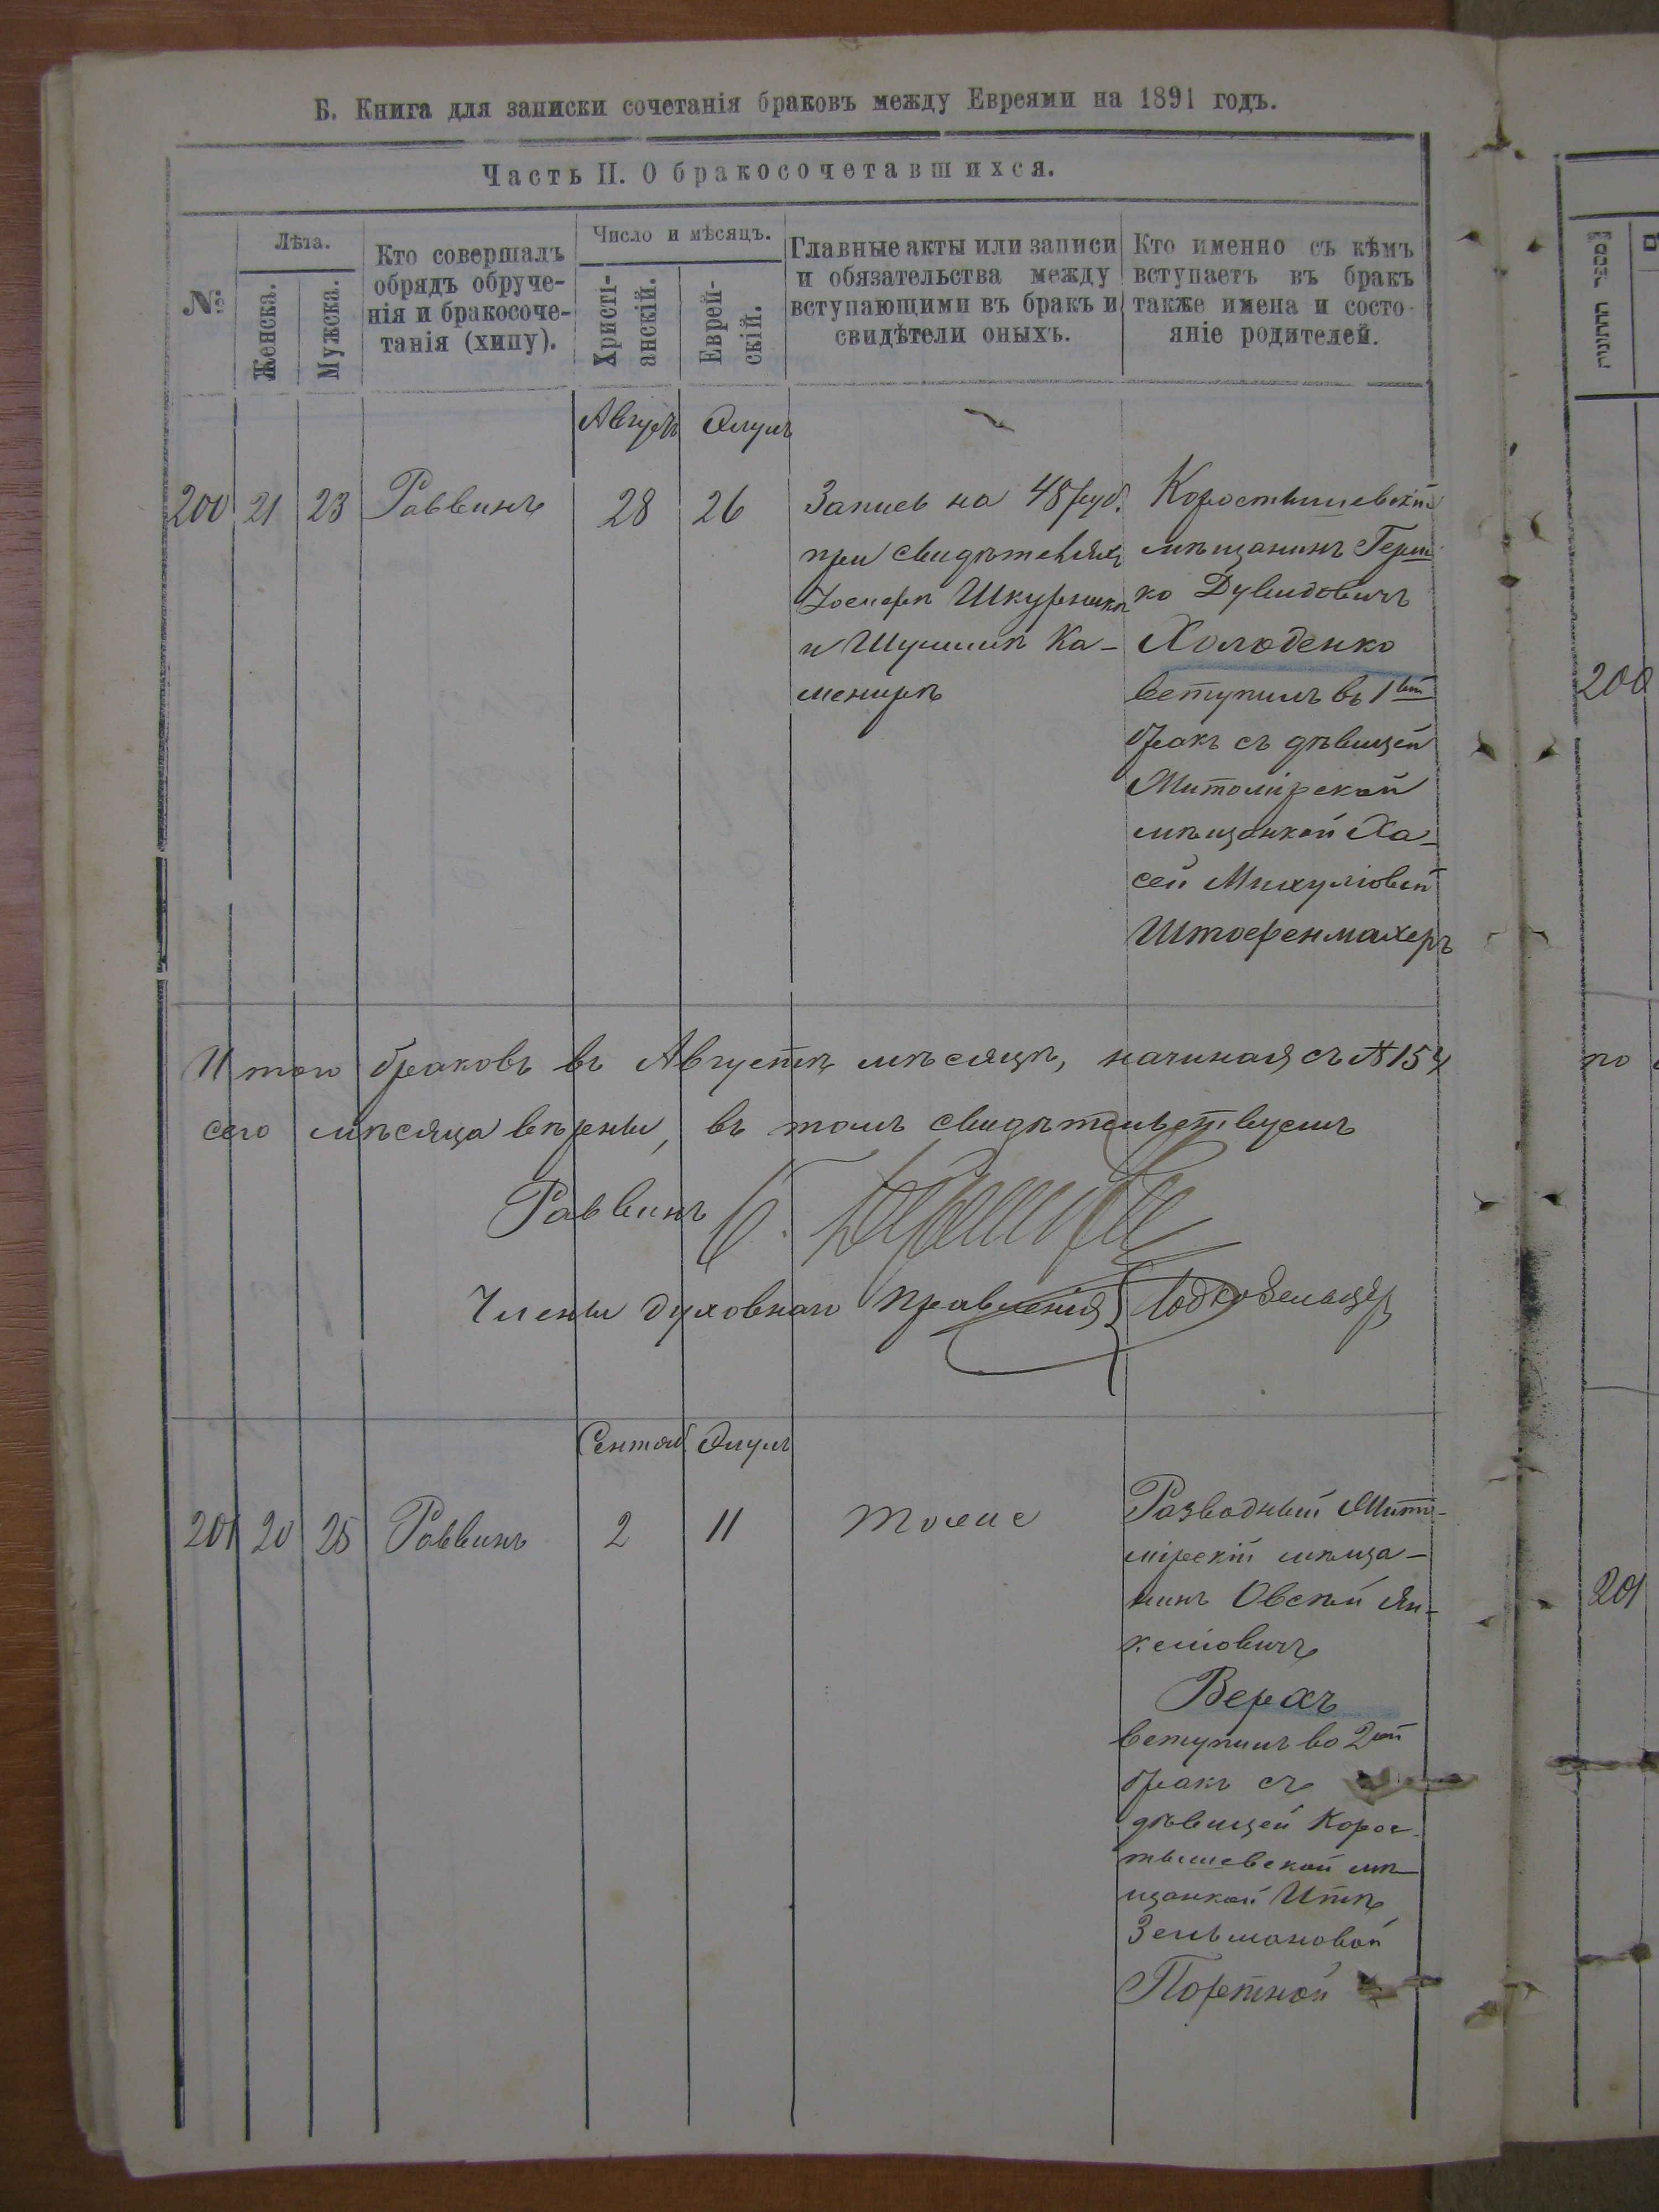 Б. Книга для записки сочетанія браковъ между Евреями на 1891 годъ.
Часть II. О бракосочетавшихся.
№
Лѣта.
Женска.
Мужска.
Кто совершалъ
обрядъ обруче-
нія и бракосоче-
танія (хипу).
Число и мѣсяцъ.
Христі-
анскій.
Еврей-
скій.
Главные акты или записи
и обязательства между
вступающими въ бракъ и
свидѣтели оныхъ.
Кто именно съ кѣмъ
вступаетъ въ бракъ
также имена и состо-
яніе родителей.
Августъ Элулъ
200 21 23 Раввинъ 28 26
Запись на 48 руб.
при свидѣтеляхъ
Іосифѣ Шкурникѣ
и Шулимѣ Ка-
менирѣ
Коростышевскій
мѣщанинъ Герш-
ко Дувидовичъ
Холоденко
вступилъ въ 1ый
бракъ съ дѣвицей
Житомірской
мѣщанкой Ха-
сей Михулювой
Штофенмахеръ
Итого браковъ въ Августѣ мѣсяцѣ, начиная съ № 154
сего мѣсяца вѣрны, въ томъ свидѣтельствуемъ
Раввинъ
Члены духовнаго правленія
Сентяб. Элулъ
201 20 25 Раввинъ 2 11 Тоже
Разводный Жито-
мірскій мѣща-
нинъ Овсѣй Ян-
келіовичъ
Верхъ
вступилъ во 2ой
бракъ съ
дѣвицей Корос-
тышевской мѣ-
щанкой Итѣ
Зельмановой
Портной
מספר החתונות
200
по
201